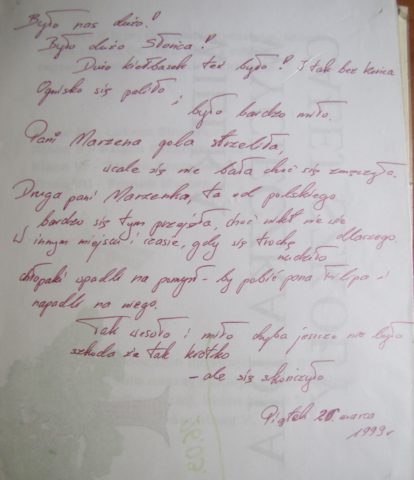 Było nas dużo!
Było dużo Słońca!
Dużo kiełbasek też było! I tak bez końca
Ognisko się paliło
i
było bardzo miło.
Pani Marzena gola strzeliła,
wcale się nie bała choć się zmęczyła.
Druga pani Marzenka, ta od polskiego
bardzo się tym przejęła, choć nikt nie wie
dlaczego.
W innym miejscu i czasie, gdy się trochę
nudziło
chłopaki wpadli na pomysł - by pobić pana Filipa i
napadli na niego.
Tak wesoło i miło chyba jeszcze nie było
szkoda że tak krótko
- ale się skończyło
Piątek 26 marca
1999 r